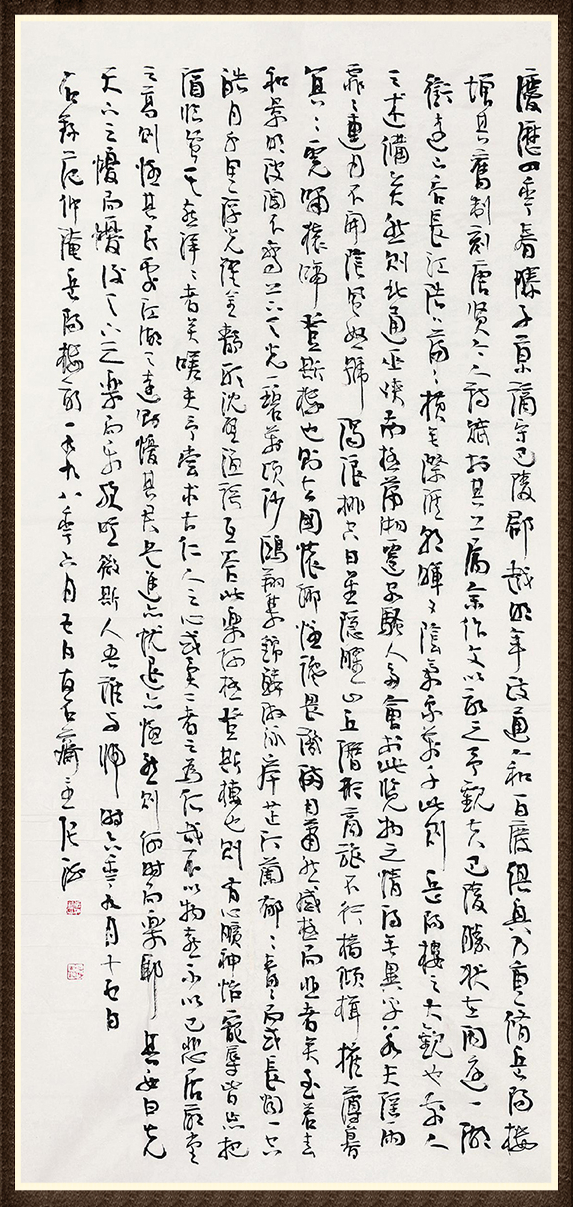 慶歷四年春滕子京謫守巴陵郡越明年政通人和百廢俱興乃重修岳陽樓
增其舊制刻唐賢今人詩賦於其上屬余作文以記之予觀夫巴陵勝狀在洞庭一湖
銜遠山吞長江浩浩蕩蕩橫無際涯朝暉夕陰氣象萬千此則岳陽樓之大觀也前人
之述備矣然則北通巫峽南極瀟湘遷客騷人多會於此覽物之情得無異乎若夫霪雨
霏霏連月不開陰風怒號濁浪排空日星隱曜山岳潛形商旅不行檣傾楫摧薄暮
冥冥虎嘯猿啼登斯樓也則有去國懷鄉憂讒畏譏滿目蕭然感極而悲者矣至若春
和景明波瀾不驚上下天光一碧萬頃沙鷗翔集錦鱗游泳岸芷汀蘭郁郁青青而或長煙一空
皓月千里浮光躍金靜影沈璧漁歌互答此樂何極登斯樓也則有心曠神怡寵辱皆忘把
酒臨風其喜洋洋者矣嗟夫予嘗求古仁人之心或異二者之為何哉不以物喜不以己悲居廟堂
之高則憂其民處江湖之遠則憂其君是進亦憂退亦憂然則何時而樂耶 其必曰先
天下之憂而憂後天下之樂而樂歟噫微斯人吾誰與歸 時六年九月十五日
右錄范仲淹岳陽樓記一九九八年六月五日